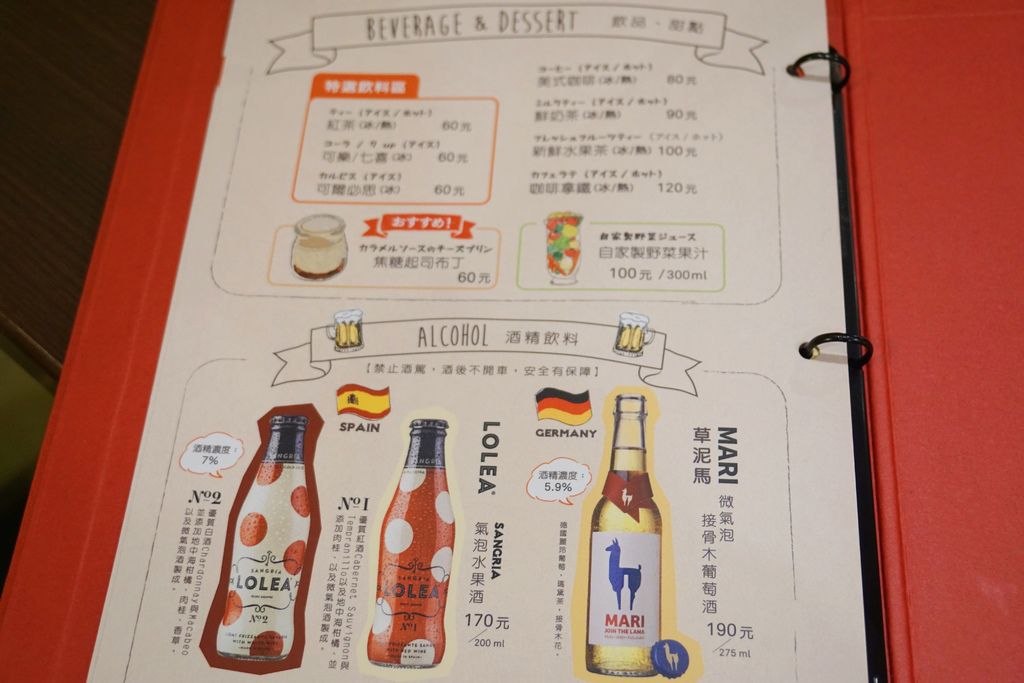 BEVERAGE & DESSERT 飲品、甜點
特選飲料區
ティー (アイス / ホット)
紅茶 (冰/熱) 60元
コーラ / 7 up (アイス)
可樂/七喜 (冰) 60元
カルピス (アイス)
可爾必思 (冰) 60元
コーヒー (アイス / ホット)
美式咖啡 (冰/熱) 80元
ミルクティー (アイス / ホット)
鮮奶茶 (冰/熱) 90元
フレッシュフルーツティー (アイス / ホット)
新鮮水果茶 (冰/熱) 100元
カフェラテ (アイス / ホット)
咖啡拿鐵 (冰/熱) 120元
おすすめ!
カラメルソースのチーズプリン
焦糖起司布丁
60元
自家製野菜ジュース
自家製野菜果汁
100元 /300ml
ALCOHOL 酒精飲料
【禁止酒駕,酒後不開車,安全有保障】
SPAIN
酒精濃度:
7%
No2
優質白酒Chardonnay與Macabeo
並添加地中海柑橘,肉桂,香草,
以及微氣泡酒製成。
SANGRIA
LOLEA
No2
No1
優質紅酒Cabernet Sauvignon與
Tempranillo以及地中海柑橘,並
添加肉桂,以及微氣泡酒製成。
SANGRIA
LOLEA
No1
LOLEA
SANGRIA
氣泡水果酒
170元
/200 ml
GERMANY
酒精濃度:
5.9%
德國麗玲葡萄,瑪黛茶,接骨木花。
MARI
JOIN THE LAMA
MARI
草泥馬
微氣泡
接骨木葡萄酒
190元
/275 ml